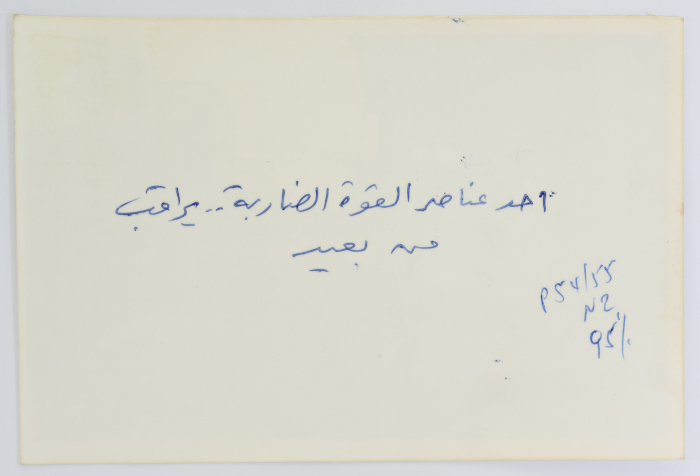 احد عناصر القوة الضاربة.. يراقب
من بعيد
P54/55
N2
95%